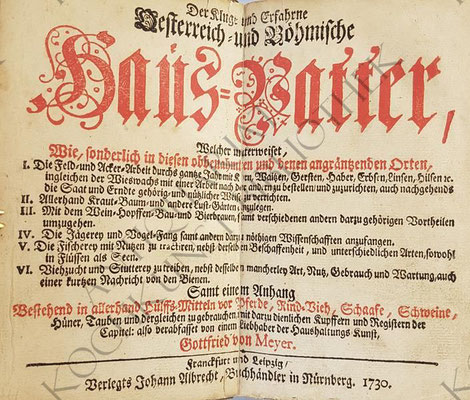 Der Kluge und Erfahrne
Oesterreich- und Böhmische
Haus-Vatter,
Welcher unterweiset,
Wie, sonderlich in diesen obbenahmten und denen angräntzenden Orten,
I. Die Feld- und Acker-Arbeit durchs gantze Jahr mit Korn, Waitzen, Gersten, Haber, Erbsen, Linsen, Hilsen ꝛc.
ingleichen der Wieswachs mit einer Arbeit nach der andern zu bestellen und zuzurichten, auch nachgehends
die Saat und Erndte gehörig- und nützlicher Weise zu verrichten.
II. Allerhand Kraut- Baum- und andere Lust-Gärten anzulegen.
III. Mit dem Wein- Hopffen- Bau- und Bierbrauen, samt verschiedenen andern darzu gehörigen Vortheilen
umzugehen.
IV. Die Jägerey und Vogel-Fang samt andern darzu nöthigen Wissenschafften anzufangen.
V. Die Fischerey mit Nutzen zu treiben, nebst derselben Beschaffenheit, und unterschiedlichen Arten, sowohl
in Flüssen als Seen.
VI. Viehzucht und Stutterey zu treiben, nebst desselben mancherley Art, Nutz, Gebrauch und Wartung, auch
einer kurtzen Nachricht von den Bienen.
Samt einem Anhang
Bestehend in allerhand Hülffs-Mitteln vor Pferde, Rind-Vieh, Schaafe, Schweine,
Hüner, Tauben und dergleichen zu gebrauchen, mit darzu dienlichen Kupffern und Registern der
Capitel: also verabfasset von einem Liebhaber der Haushaltungs Kunst,
Gottfried von Meyer.
Franckfurt und Leipzig,
Verlegts Johann Albrecht, Buchhändler in Nürnberg. 1730.